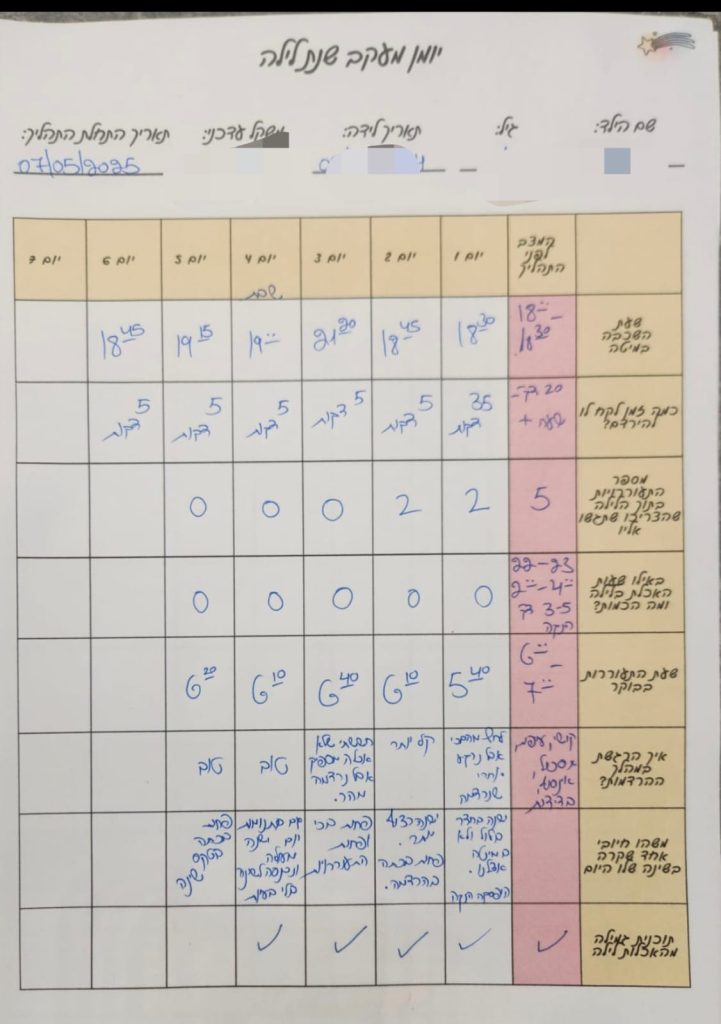 יומן מעקב שנת לילה
שם הילד: גיל: תאריך לידה: משקל עדכני: תאריך התחלת התהליך:
07/05/2025
המצב לפני התהליך יום 1 יום 2 יום 3 יום 4 יום 5 יום 6 יום 7
שבת
שעת השכבה במיטה 18:00 - 18:30 18:30 18:45 21:20 19:00 19:15 18:45
כמה זמן לקח לו להירדם? 20 דק' - שעה + 35 דקות 5 דקות 5 דקות 5 דקות 5 דקות 5 דקות
מספר התעוררויות בתוך הלילה שהצריכו שתגשו אליו 5 2 2 0 0 0
באילו שעות האכלת בלילה ומה הכמות? 22-23 2:00-4:00 3-5 דק הנקה 0 0 0 0 0
שעת התעוררות בבוקר 6:00 - 7:00 5:40 6:10 6:40 6:10 6:20
איך הרגשת במהלך ההרדמות? קושי, עייפות, תסכול, בדידות אבל נרגע אחרי שנרדמה קל יותר חששתי שלא אכלה מספיק אבל נרדמה מהר. טוב טוב
משהו חיובי אחד שקרה בשינה שלו היום ישנה בחדר בלול ולא במיטה אצלנו. הפסקת הנקה ישנה רצוף יותר. פחות בכתה בהרדמה. פחות בכי ופחות התעוררויות גם בתנומות יום ישנה מעולה ונכנסה לשינה בלי בעיות פחות בכתה בטקס שינה
תוכנית גמילה מהאכלות לילה ✓ ✓ ✓ ✓ ✓